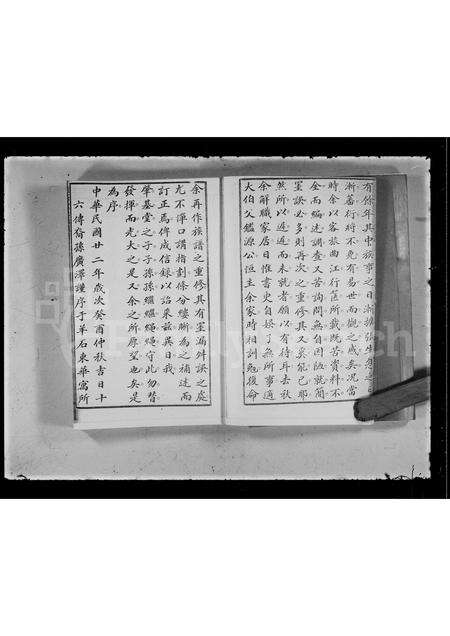 有餘年其中族事之日漸擴張生息之日
漸蕃行將不免有易世而觀之感矣況當
時余以客旅曲江行匧所載既苦資料不
全而編述調查又苦詢問無自因陋就簡
罣誤必多則再次之重修其又奚能已耶
然所以遲遲而未就者願以有待耳去秋
余解職家居日惟書史自娛了無所事適
大伯父鑑源公恒主余家時相訓勉復命
余再作族譜之重修其有罣漏舛誤之處
尤不憚口講指劃條分縷晰為之補述而
訂正焉俾成信錄以詒來茲異日我
肇基堂之子子孫孫繼繼繩繩守此勿替
發揮而光大之是又余之所厚望也矣是
為序
中華民國廿二年歲次癸酉仲秋吉日十
六傳裔孫廣澤謹序于羊石東華寓所
FamilySearch